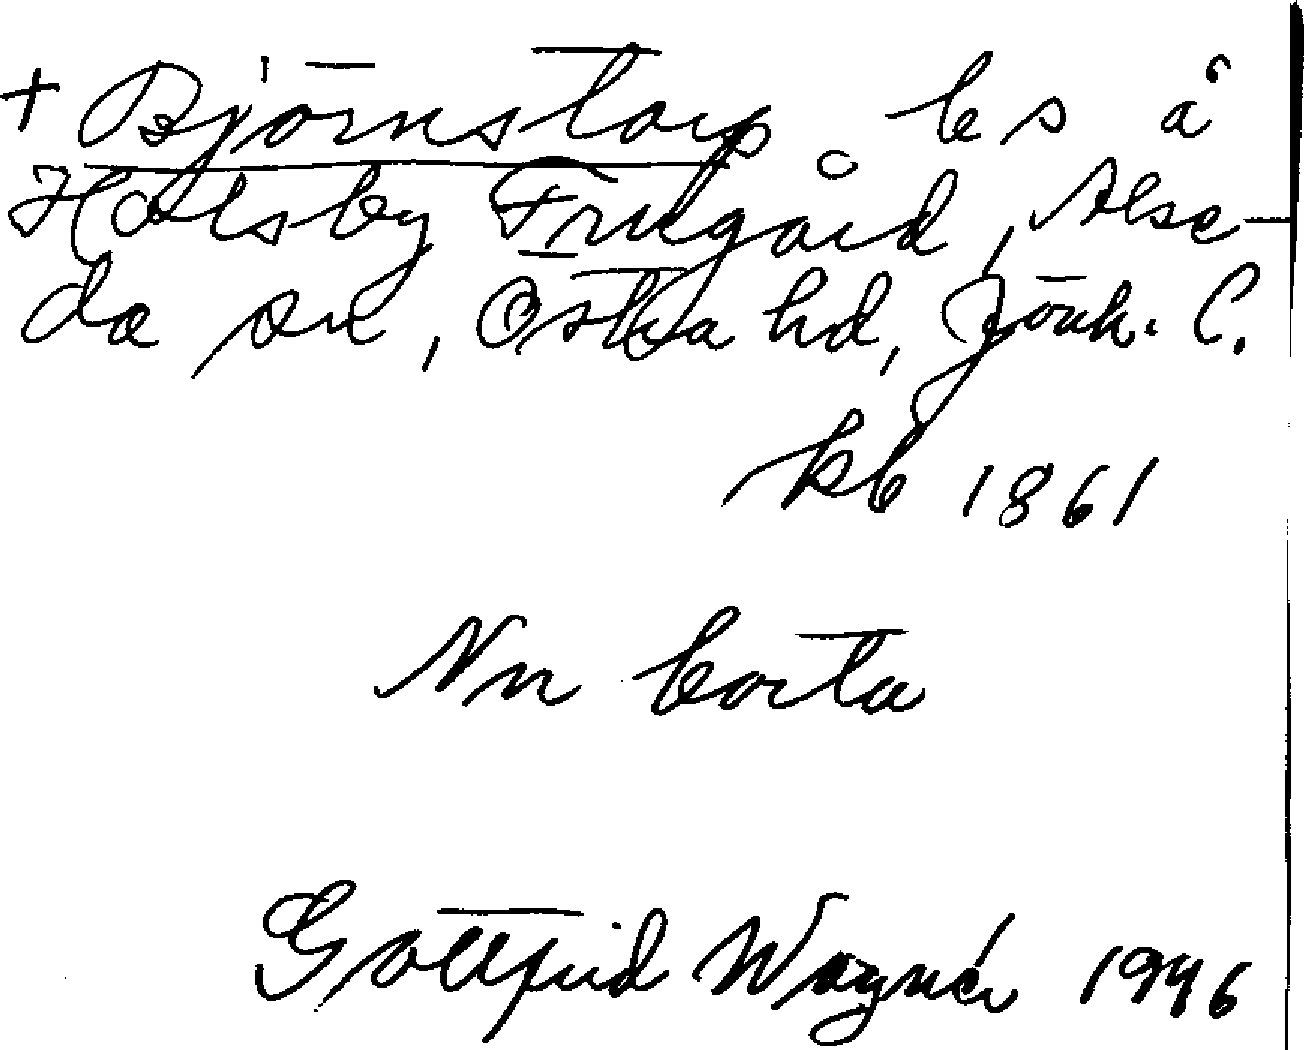 + Björnstorp ls å
Holsby Frugård, Alse-
da sn, Östra hd, Jönk. l.
kb 1861
Nn borta
Gottfrid Wagnér 1946